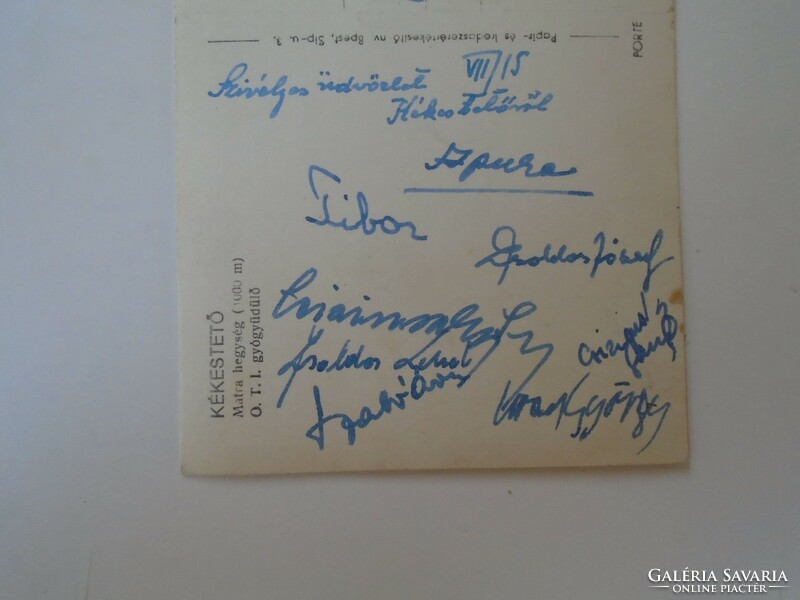 Papir- és Irodaszerértékesítő nv Bpest, Sip-u. 3.
PORTE
VII/15
Szivélyes üdvözlet
Kékestetőről
Apuka
Tibor
Zsoldos József
Zsoldos
Szabó
György
KÉKESTETŐ
Mátra hegység (1000 m)
O. T. I. gyógyüdülő
GALÉRIA SAVARIA
ONLINE PIACTÉR